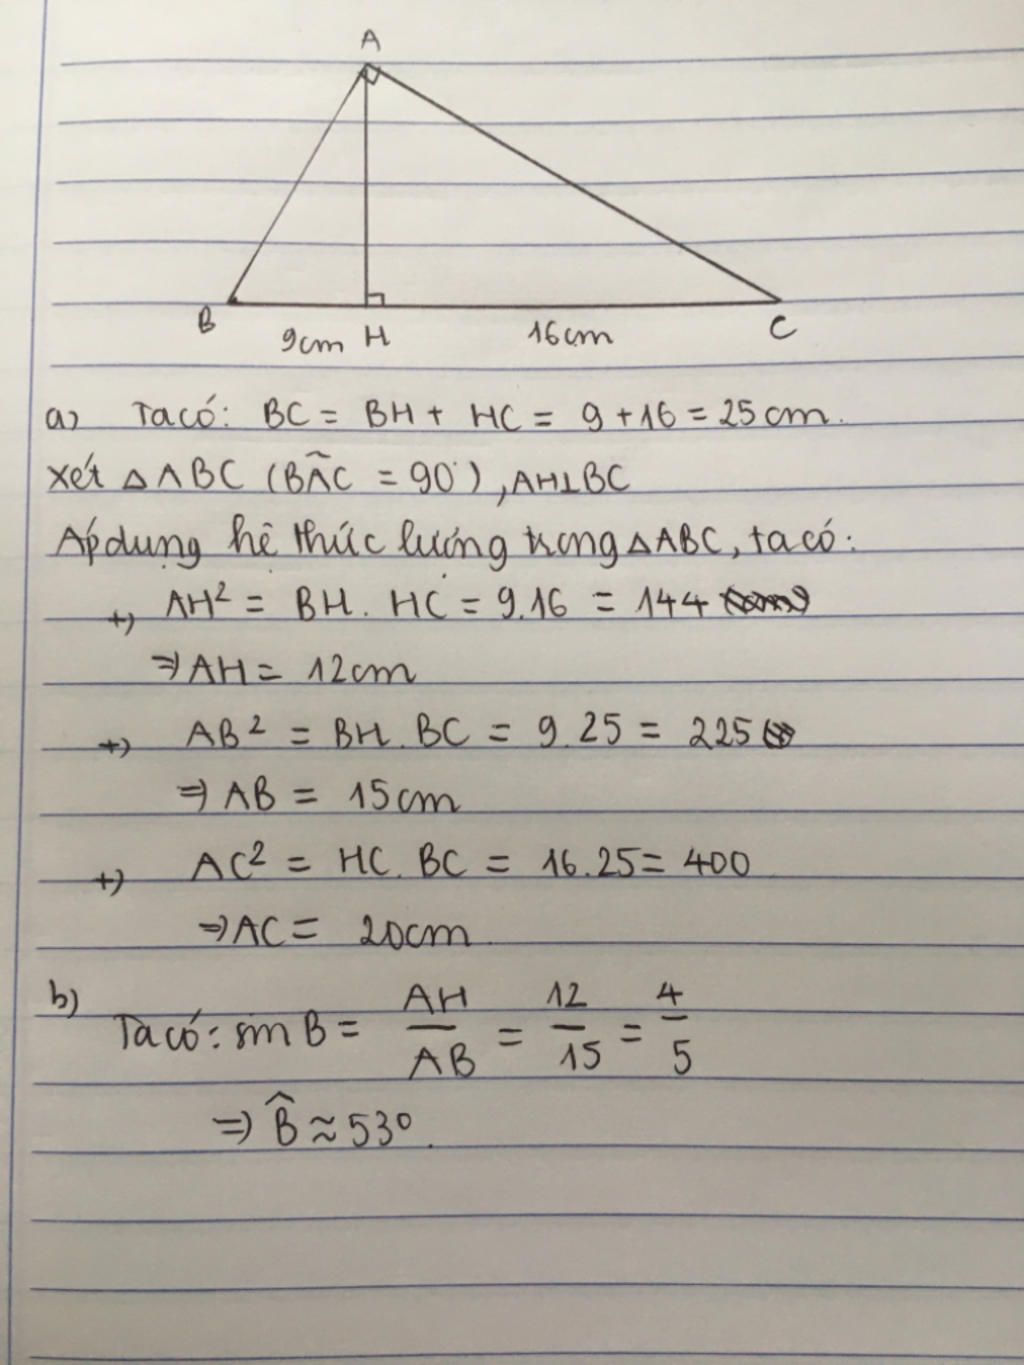 A
B
9cm H
16cm
C
a) Ta có: BC = BH + HC = 9 + 16 = 25 cm.
Xét △ABC (BÂC = 90°), AH⊥BC
Áp dụng hệ thức lượng trong △ABC, ta có:
+) AH² = BH. HC = 9.16 = 144
⇒ AH = 12cm
+) AB² = BH. BC = 9.25 = 225
⇒ AB = 15cm
+) AC² = HC. BC = 16.25 = 400
⇒ AC = 20cm
b) Ta có: sin B = AH/AB = 12/15 = 4/5
⇒ B̂ ≈ 53°.